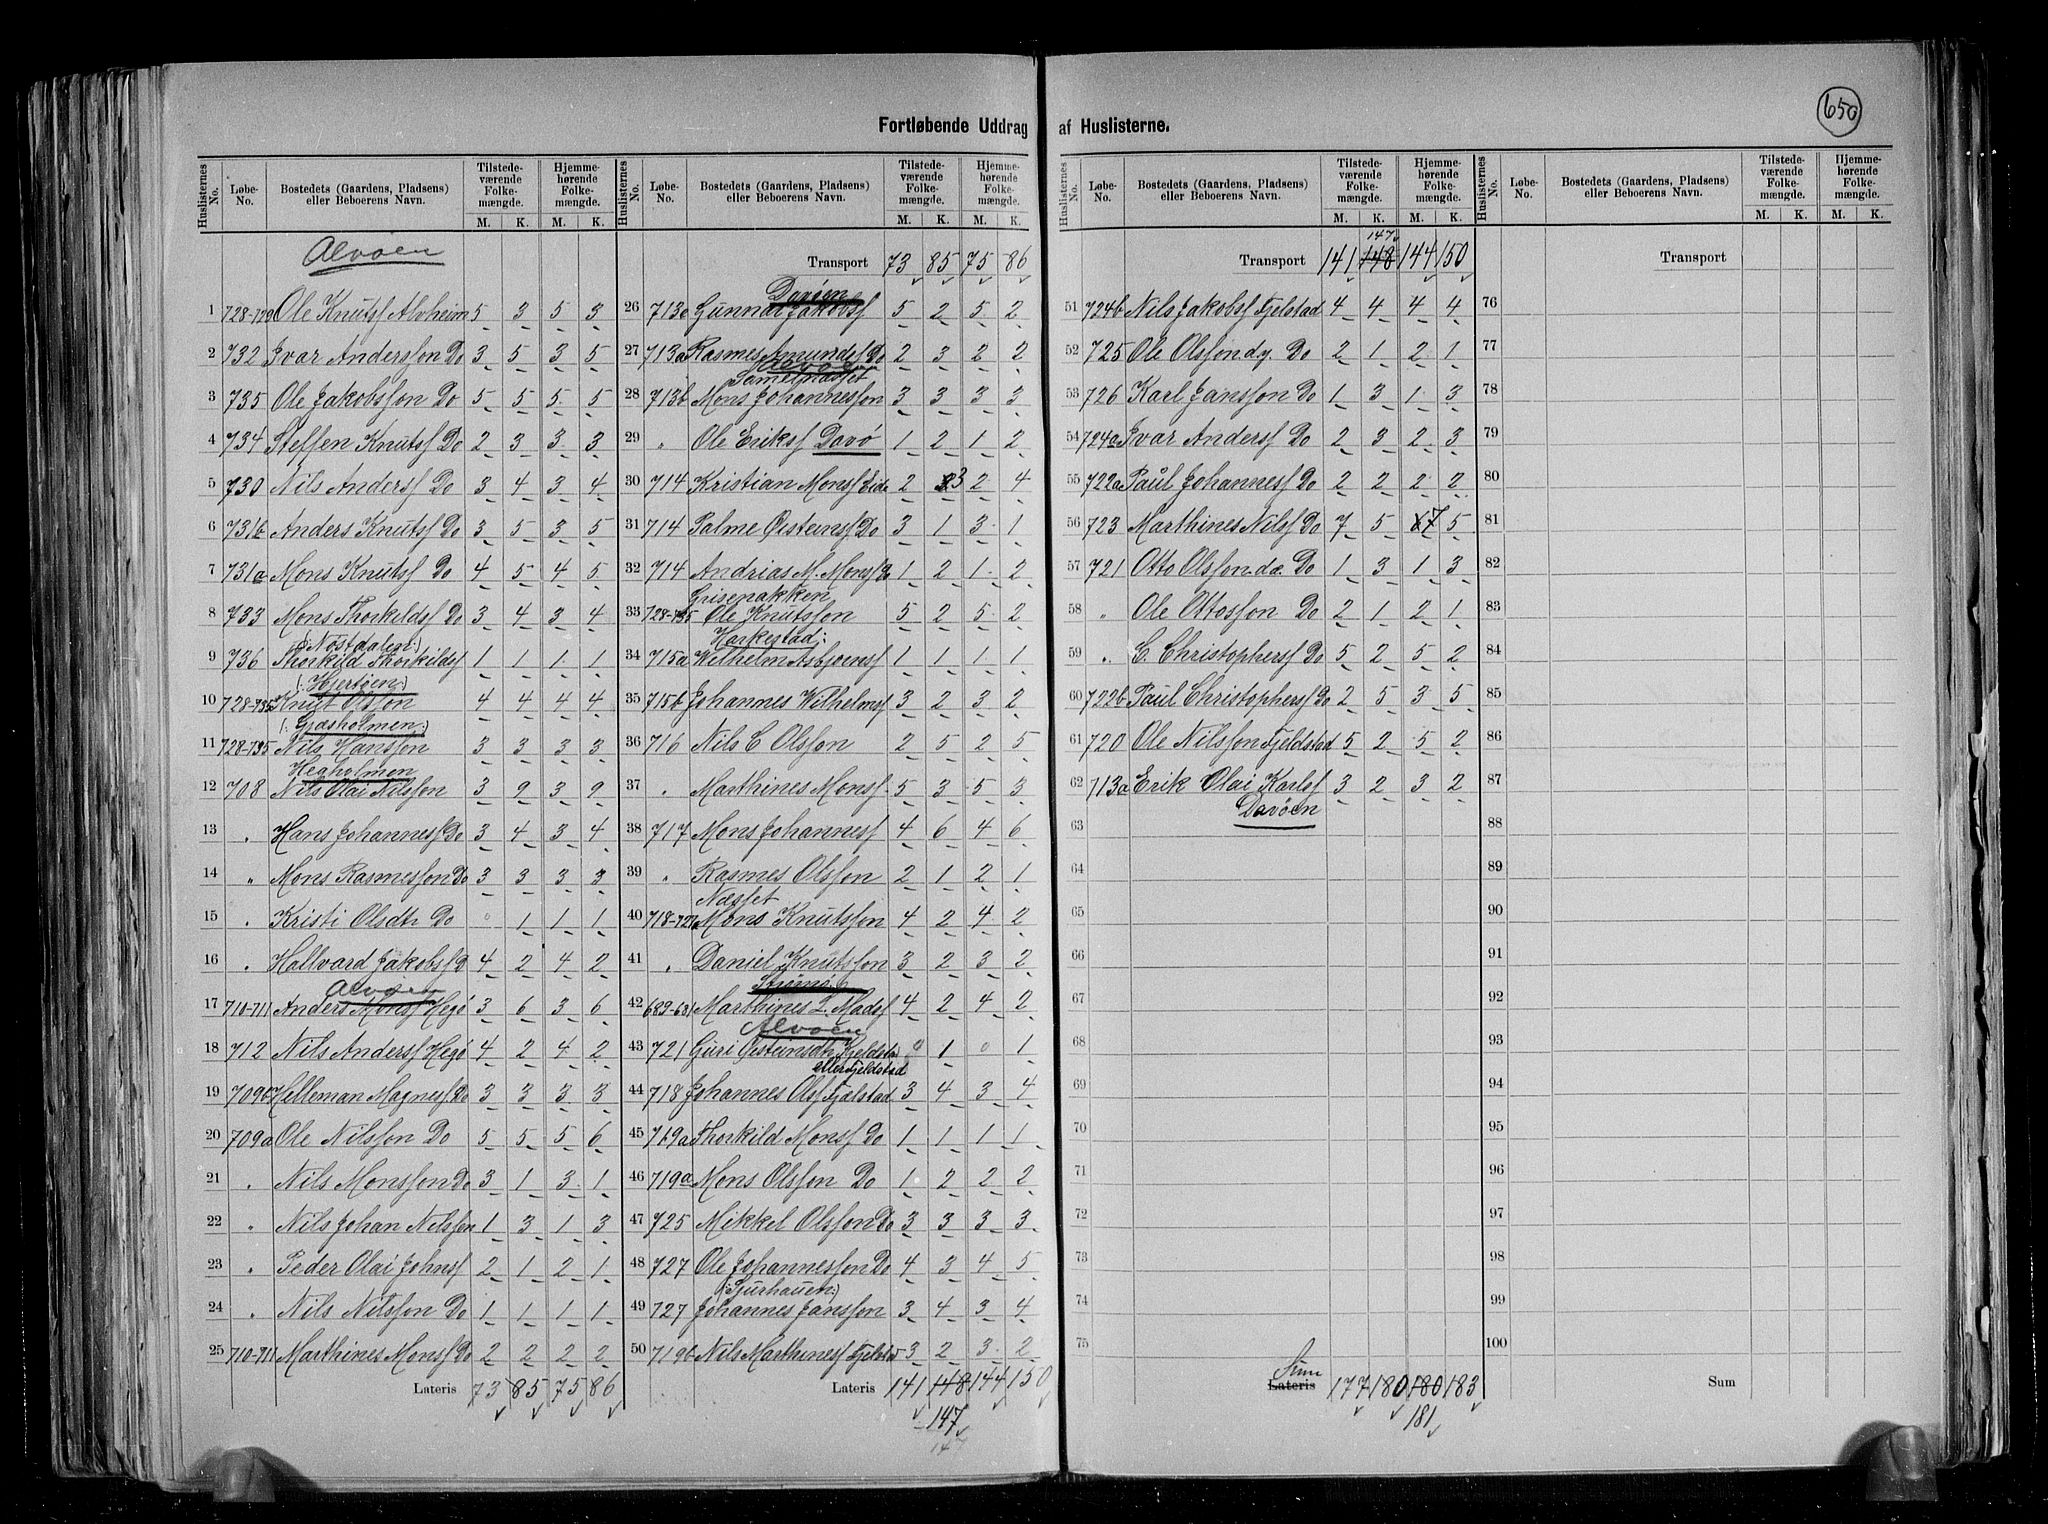 650
Fortløbende Uddrag af Huslisterne.
Huslisternes No. Løbe-No. Bostedets (Gaardens, Pladsens) eller Beboerens Navn. Tilstedeværende Folkemængde. M. K. Hjemmehørende Folkemængde. M. K.
Alvøen
1 728-729 Ole Knutsf Alvheim 5 3 5 3
2 732 Ivar Andersson Do 3 5 3 5
3 735 Ole Jakobsson Do 5 5 5 5
4 734 Steffen Knutsf Do 2 3 3 3
5 730 Nils Andersf Do 3 4 3 4
6 731b Anders Knutsf Do 3 5 3 5
7 731a Mons Knutsf Do 4 5 4 5
8 733 Mons Thorkildsf Do 3 4 3 4
(: Nøstdalen :)
9 736 Thorkild Thorkildsf 1 1 1 1
(: Hjertøen :)
10 728-735 Knut Olsson 4 4 4 4
(: Gjæsholmen :)
11 728-735 Nils Hansson 3 3 3 3
Hegholmen
12 708 Nils Olai Nilsson 3 9 3 9
13 " Hans Johannesf Do 3 4 3 4
14 " Mons Rasmesson Do 3 3 3 3
15 " Kristi Olsdtr Do 0 1 1 1
16 " Hallvard Jakobsf D 4 2 4 2
Alvøen
17 710-711 Anders Monsf Hegø 3 6 3 6
18 712 Nils Andersf Hegø 4 2 4 2
19 709b Helleman Magnesf Do 3 3 3 3
20 709a Ole Nilsson Do 5 5 5 6
21 " Nils Monsson Do 3 1 3 1
22 " Nils Johan Nilsson 1 3 1 3
23 " Peder Olai Johnsf 2 1 2 1
24 " Nils Nilsson Do 1 1 1 1
25 710-711 Marthines Monsf Do 2 2 2 2
Lateris 73 85 75 86
Huslisternes No. Løbe-No. Bostedets (Gaardens, Pladsens) eller Beboerens Navn. Tilstedeværende Folkemængde. M. K. Hjemmehørende Folkemængde. M. K.
Transport 73 85 75 86
Davøen
26 713c Gunnar Jakobsf 5 2 5 2
27 713a Rasmes Amundsf Do 2 3 2 2
Alvøen
28 713b Mons Johannesson 3 3 3 3
29 " Ole Eriksf Davø 1 2 1 2
30 714 Kristian Monsf Eide 2 3 2 4
31 714 Salme Øisteinsf Do 3 1 3 1
32 714 Andrias M. Monsf Do 1 2 1 2
Grisenakken
33 728-735 Ole Knutsson 5 2 5 2
Harkestad:
34 715a Wilhelm Asbjoensf 1 1 1 1
35 715b Johannes Wilhelmsf 3 2 3 2
36 716 Nils C Olsson 2 5 2 5
37 " Marthines Monsf 5 3 5 3
38 717 Mons Johannesf 4 6 4 6
39 " Rasmes Olsson 2 1 2 1
Næsset
40 718-721 Mons Knutsson 4 2 4 2
41 " Daniel Knutsson 3 2 3 2
42 689-691 Marthines L. Madsf 4 2 4 2
Alvøen
43 721 Guri Øisteinsdtr Kjeldsta 0 1 0 1
eller Fjeldstad
44 718 Johannes Olsf Fjelstad 3 4 3 4
45 719a Thorkild Monsf Do 1 1 1 1
46 719a Mons Olsson Do 1 2 2 2
47 725 Mikkel Olsson Do 3 3 3 3
48 727 Ole Johannesson Do 4 3 4 5
(: Sjurhauen :)
49 727 Johannes Jansson 3 4 3 4
50 719b Nils Marthinesf Fjelstad 3 2 3 2
Lateris 141 148 144 150
147
147
Huslisternes No. Løbe-No. Bostedets (Gaardens, Pladsens) eller Beboerens Navn. Tilstedeværende Folkemængde. M. K. Hjemmehørende Folkemængde. M. K.
147
Transport 141 148 144 150
51 724b Nils Jakobsf Fjelstad 4 4 4 4
52 725 Ole Olsson dy. Do 2 1 2 1
53 726 Karl Jansson Do 1 3 1 3
54 724a Ivar Andersf Do 2 3 2 3
55 722a Paul Johannesf Do 2 2 2 2
56 723 Marthines Nilsf Do 7 5 7 5
57 721 Otto Olsson dæ. Do 1 3 1 3
58 " Ole Ottosson Do 2 1 2 1
59 " C. Christophersf Do 5 2 5 2
60 722b Paul Christophersf Do 2 5 3 5
61 720 Ole Nilsson Fjeldstad 5 2 5 2
62 713a Erik Olai Karlsf 3 2 3 2
Davøen
63
64
65
66
67
68
69
70
71
72
73
74
75
Sum
Lateris 177 180 180 183
181
Huslisternes No. Løbe-No. Bostedets (Gaardens, Pladsens) eller Beboerens Navn. Tilstedeværende Folkemængde. M. K. Hjemmehørende Folkemængde. M. K.
Transport
76
77
78
79
80
81
82
83
84
85
86
87
88
89
90
91
92
93
94
95
96
97
98
99
100
Sum